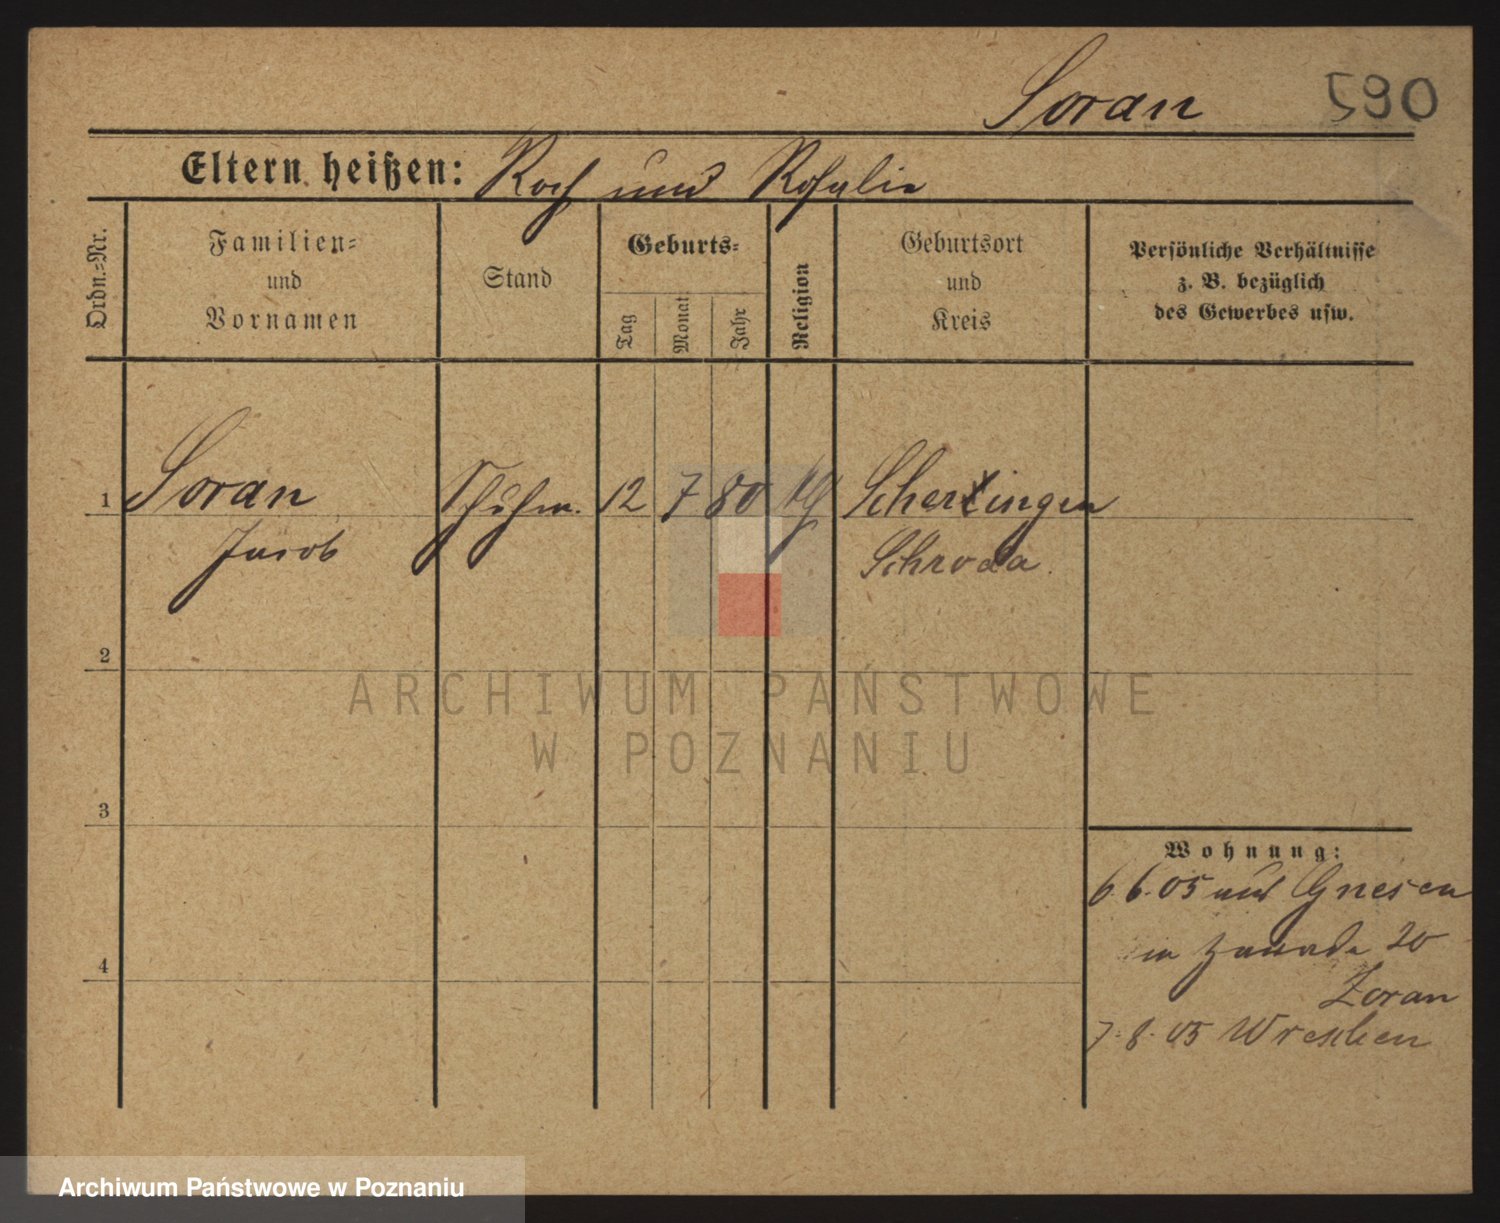 Soran 590
Eltern heißen: Roch und Rosalie
Ordn.-Nr.
Familien-
und
Vornamen
Stand
Geburts-
Tag
Monat
Jahr
Religion
Geburtsort
und
Kreis
Persönliche Verhältnisse
z. B. bezüglich
des Gewerbes usw.
1 Soran Schuhm. 12 7 80 Scherzingen
Jacob Schroda.
2
ARCHIWUM PAŃSTWOWE
W POZNANIU
3
Wohnung:
6. 6. 05 aus Gnesen
in 20
4
Zoran
7. 8. 05 Wreschen
Archiwum Państwowe w Poznaniu